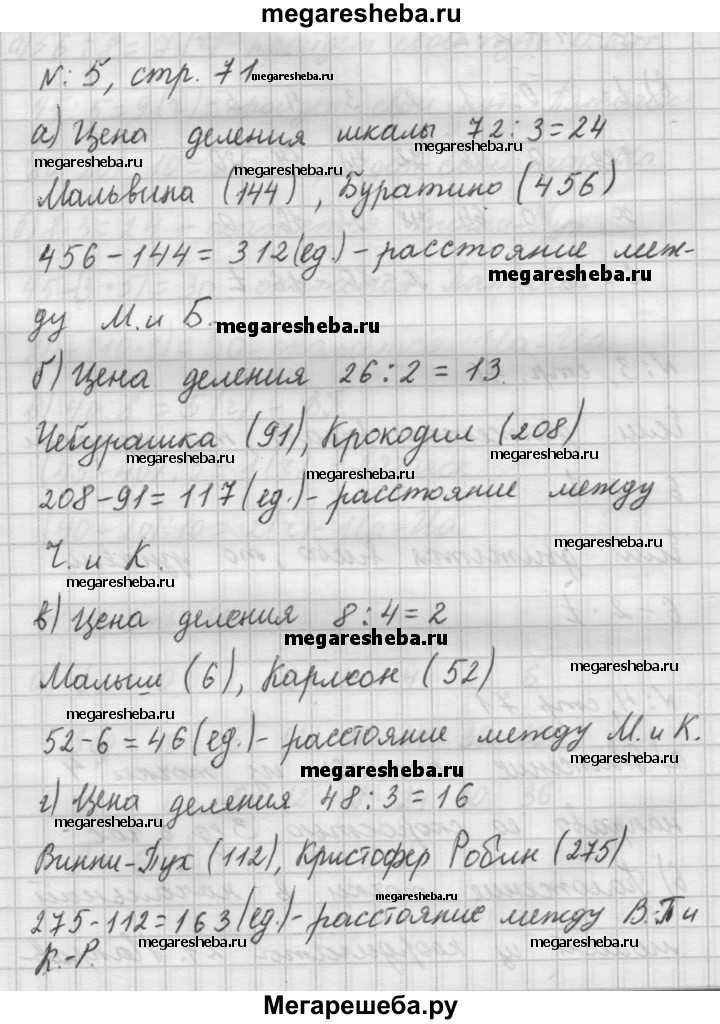 megaresheba.ru
N: 5, стр. 71 megaresheba.ru
а) Цена деления шкалы 72:3=24
megaresheba.ru
megaresheba.ru megaresheba.ru
Мальвина (144), Буратино (456)
456-144=312(ед.)-расстояние меж-
megaresheba.ru
ду М. и Б. megaresheba.ru
б) Цена деления 26:2=13.
Чебурашка (91), Крокодил (208)
megaresheba.ru megaresheba.ru
208-91=117(ед.)-расстояние между
megaresheba.ru
Ч. и К.
megaresheba.ru
в) Цена деления 8:4=2
megaresheba.ru
Малыш (6), Карлсон (52)
megaresheba.ru
megaresheba.ru
52-6=46(ед.)-расстояние между М. и К.
megaresheba.ru
megaresheba.ru
г) Цена деления 48:3=16
Винни-Пух (112), Кристофер Робин (275)
megaresheba.ru
275-112=163(ед.)-расстояние между В.-П и
megaresheba.ru megaresheba.ru
К.-Р.
Мегарешеба.ру